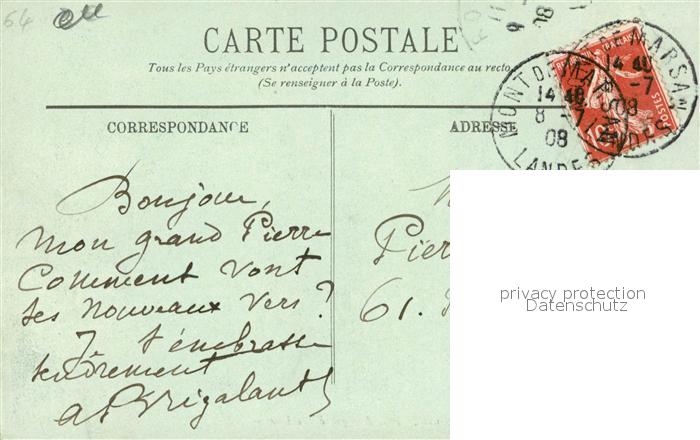 64
CARTE POSTALE
Tous les Pays étrangers n'acceptent pas la Correspondance au recto
(Se renseigner à la Poste).
CORRESPONDANCE
ADRESSE
MONT DE MARSAN
14 40
8 -7
08
LANDES
MONT DE MARSAN
14 40
8 -7
08
LANDES
POSTES
Bonjour,
mon grand Pierre
Comment vont
tes nouveaux vers ?
Je t'embrasse
tendrement
Pier
61.
privacy protection
Datenschutz